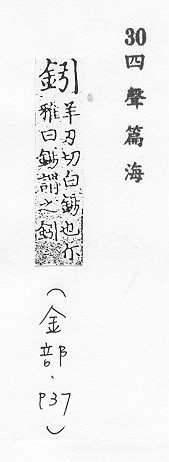 30四聲篇海
鈏
羊刃切白錫也尒
雅曰錫謂之鈏
(金部.P37)